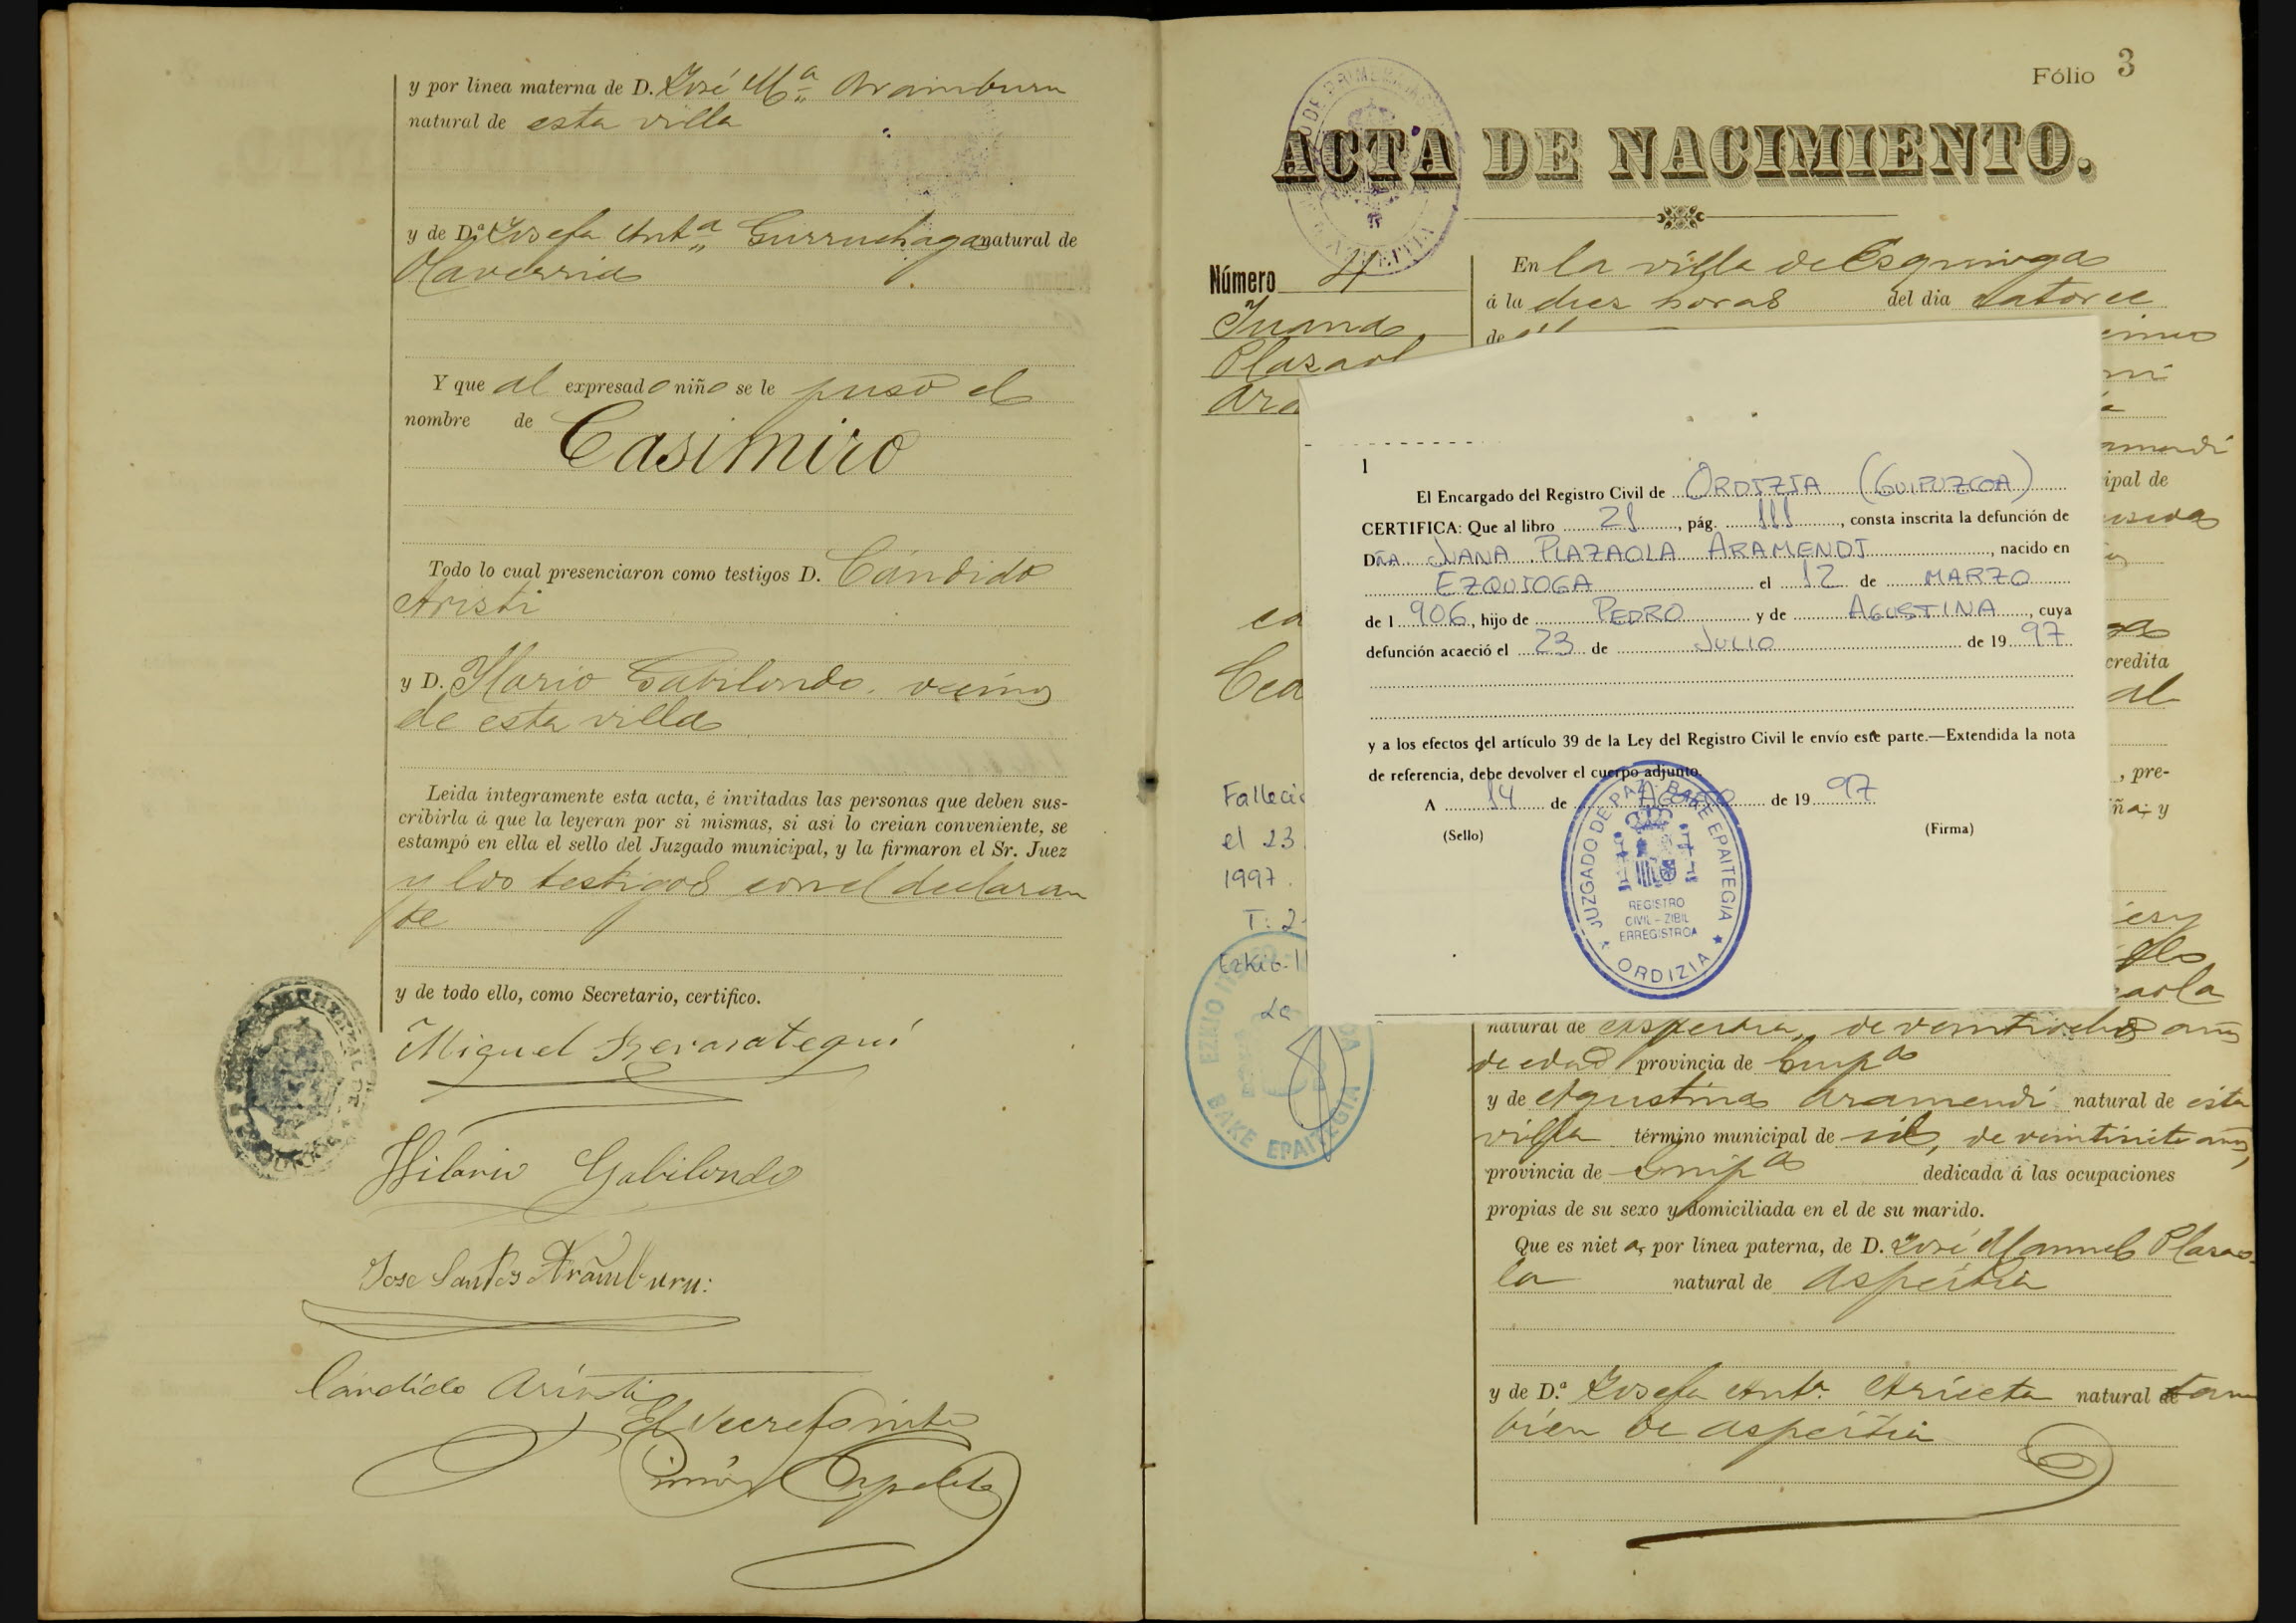 y por línea materna de D. José Mª Aramburu
natural de esta villa
y de D.ª Josefa Antª Gurruchaga natural de
Olaverria
Y que al expresado niño se le puso el
nombre de Casimiro
Todo lo cual presenciaron como testigos D. Cándido
Aristi
y D. Hilario Gabilondo vecinos
de esta villa
Leida íntegramente esta acta, é invitadas las personas que deben sus-
cribirla á que la leyeran por si mismas, si asi lo creian conveniente, se
estampó en ella el sello del Juzgado municipal, y la firmaron el Sr. Juez
y los testigos con el declaran
te
y de todo ello, como Secretario, certifico.
Miguel
Hilario Gabilondo
Jose Santos Aramburu:
Cándido Aristi
El Secret
Fólio 3
ACTA DE NACIMIENTO.
Número 4
Juana
Plazaol
Ara
En la villa de Esquioga
á la diez horas del dia catorce
de
amendi
ipal de
credita
al
, pre-
ña; y
aola
Falleció
el 23
1997.
T: 2
Ezkio-I
EZKIO
BAKE EPAITEGIA
1
El Encargado del Registro Civil de ORDIZIA (GUIPUZCOA)
CERTIFICA: Que al libro 21, pág. 111, consta inscrita la defunción de
DÑA JUANA PLAZAOLA ARAMENDI, nacido en
EZQUIOGA el 12 de MARZO
de 1906, hijo de PEDRO y de AGUSTINA, cuya
defunción acaeció el 23 de JULIO de 1997
y a los efectos del artículo 39 de la Ley del Registro Civil le envío este parte.—Extendida la nota
de referencia, debe devolver el cuerpo adjunto.
A 14 de AGOSTO de 1997
(Sello) (Firma)
JUZGADO DE PAZ - BAKE EPAITEGIA
REGISTRO
CIVIL - ZIBIL
ERREGISTROA
ORDIZIA
natural de Aspeitia, de veintiocho años
de edad provincia de Guipª
y de Agustina Aramendi natural de esta
villa término municipal de id, de veintisiete años,
provincia de Guipª dedicada á las ocupaciones
propias de su sexo y domiciliada en el de su marido.
Que es nieta, por línea paterna, de D. José Manuel Plazao-
la natural de Aspeitia
y de D.ª Josefa Antª Arieeta natural de tam
bien de Aspeitia